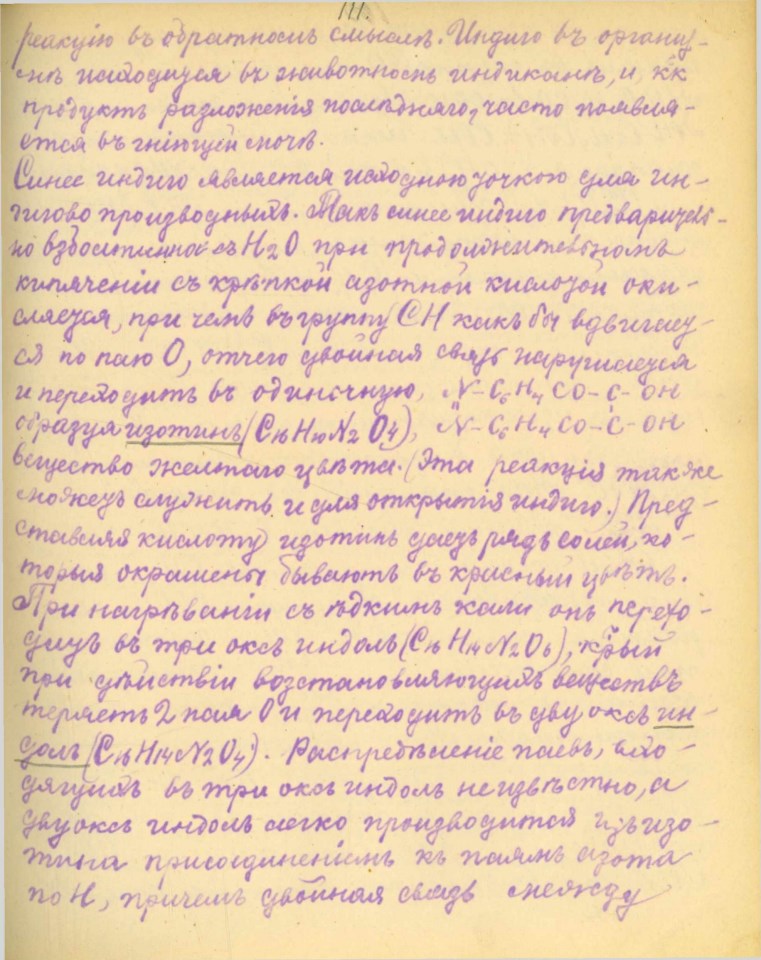 111.
реакцію въ обратномъ смыслѣ. Индиго въ организ-
мѣ находится въ животномъ индиканѣ, и, к̃к
продуктъ разложенія послѣдняго, часто появля-
ется въ гніющей мочѣ.
Синее индиго является исходною точкою для ин-
дигово производныхъ. Такъ синее индиго предваритель-
но взболтанное съ H₂O при продолжительномъ
кипяченіи съ крѣпкой азотной кислотой оки-
сляется, при чемъ въ группу CH какъ бы вдвигает-
ся по паю O, отчего двойная связь нарушается
и переходитъ въ одиночную, N-C₆H₄CO-C-OH
образуя изотинъ (C₁₆H₁₀N₂O₄), N-C₆H₄CO-C-OH
вещество желтаго цвѣта. (Эта реакція также
можетъ служить и для открытія индиго.) Пред-
ставляя кислоту изотинъ даетъ рядъ солей, ко-
торыя окрашены бываютъ въ красный цвѣтъ.
При нагрѣваніи съ ѣдкимъ кали онъ перехо-
дитъ въ три оксъ индолъ (C₁₆H₁₄N₂O₆), к̃рый
при дѣйствіи возстановляющихъ веществъ
теряетъ 2 пая O и переходитъ въ двуоксъ ин-
долъ (C₁₆H₁₄N₂O₄). Распредѣленіе паевъ, вхо-
дящихъ въ три оксъ индолъ неизвѣстно, а
двуоксъ индолъ легко производится изъ изо-
тина присоединеніемъ къ паямъ азота
по H, причемъ двойная связь между